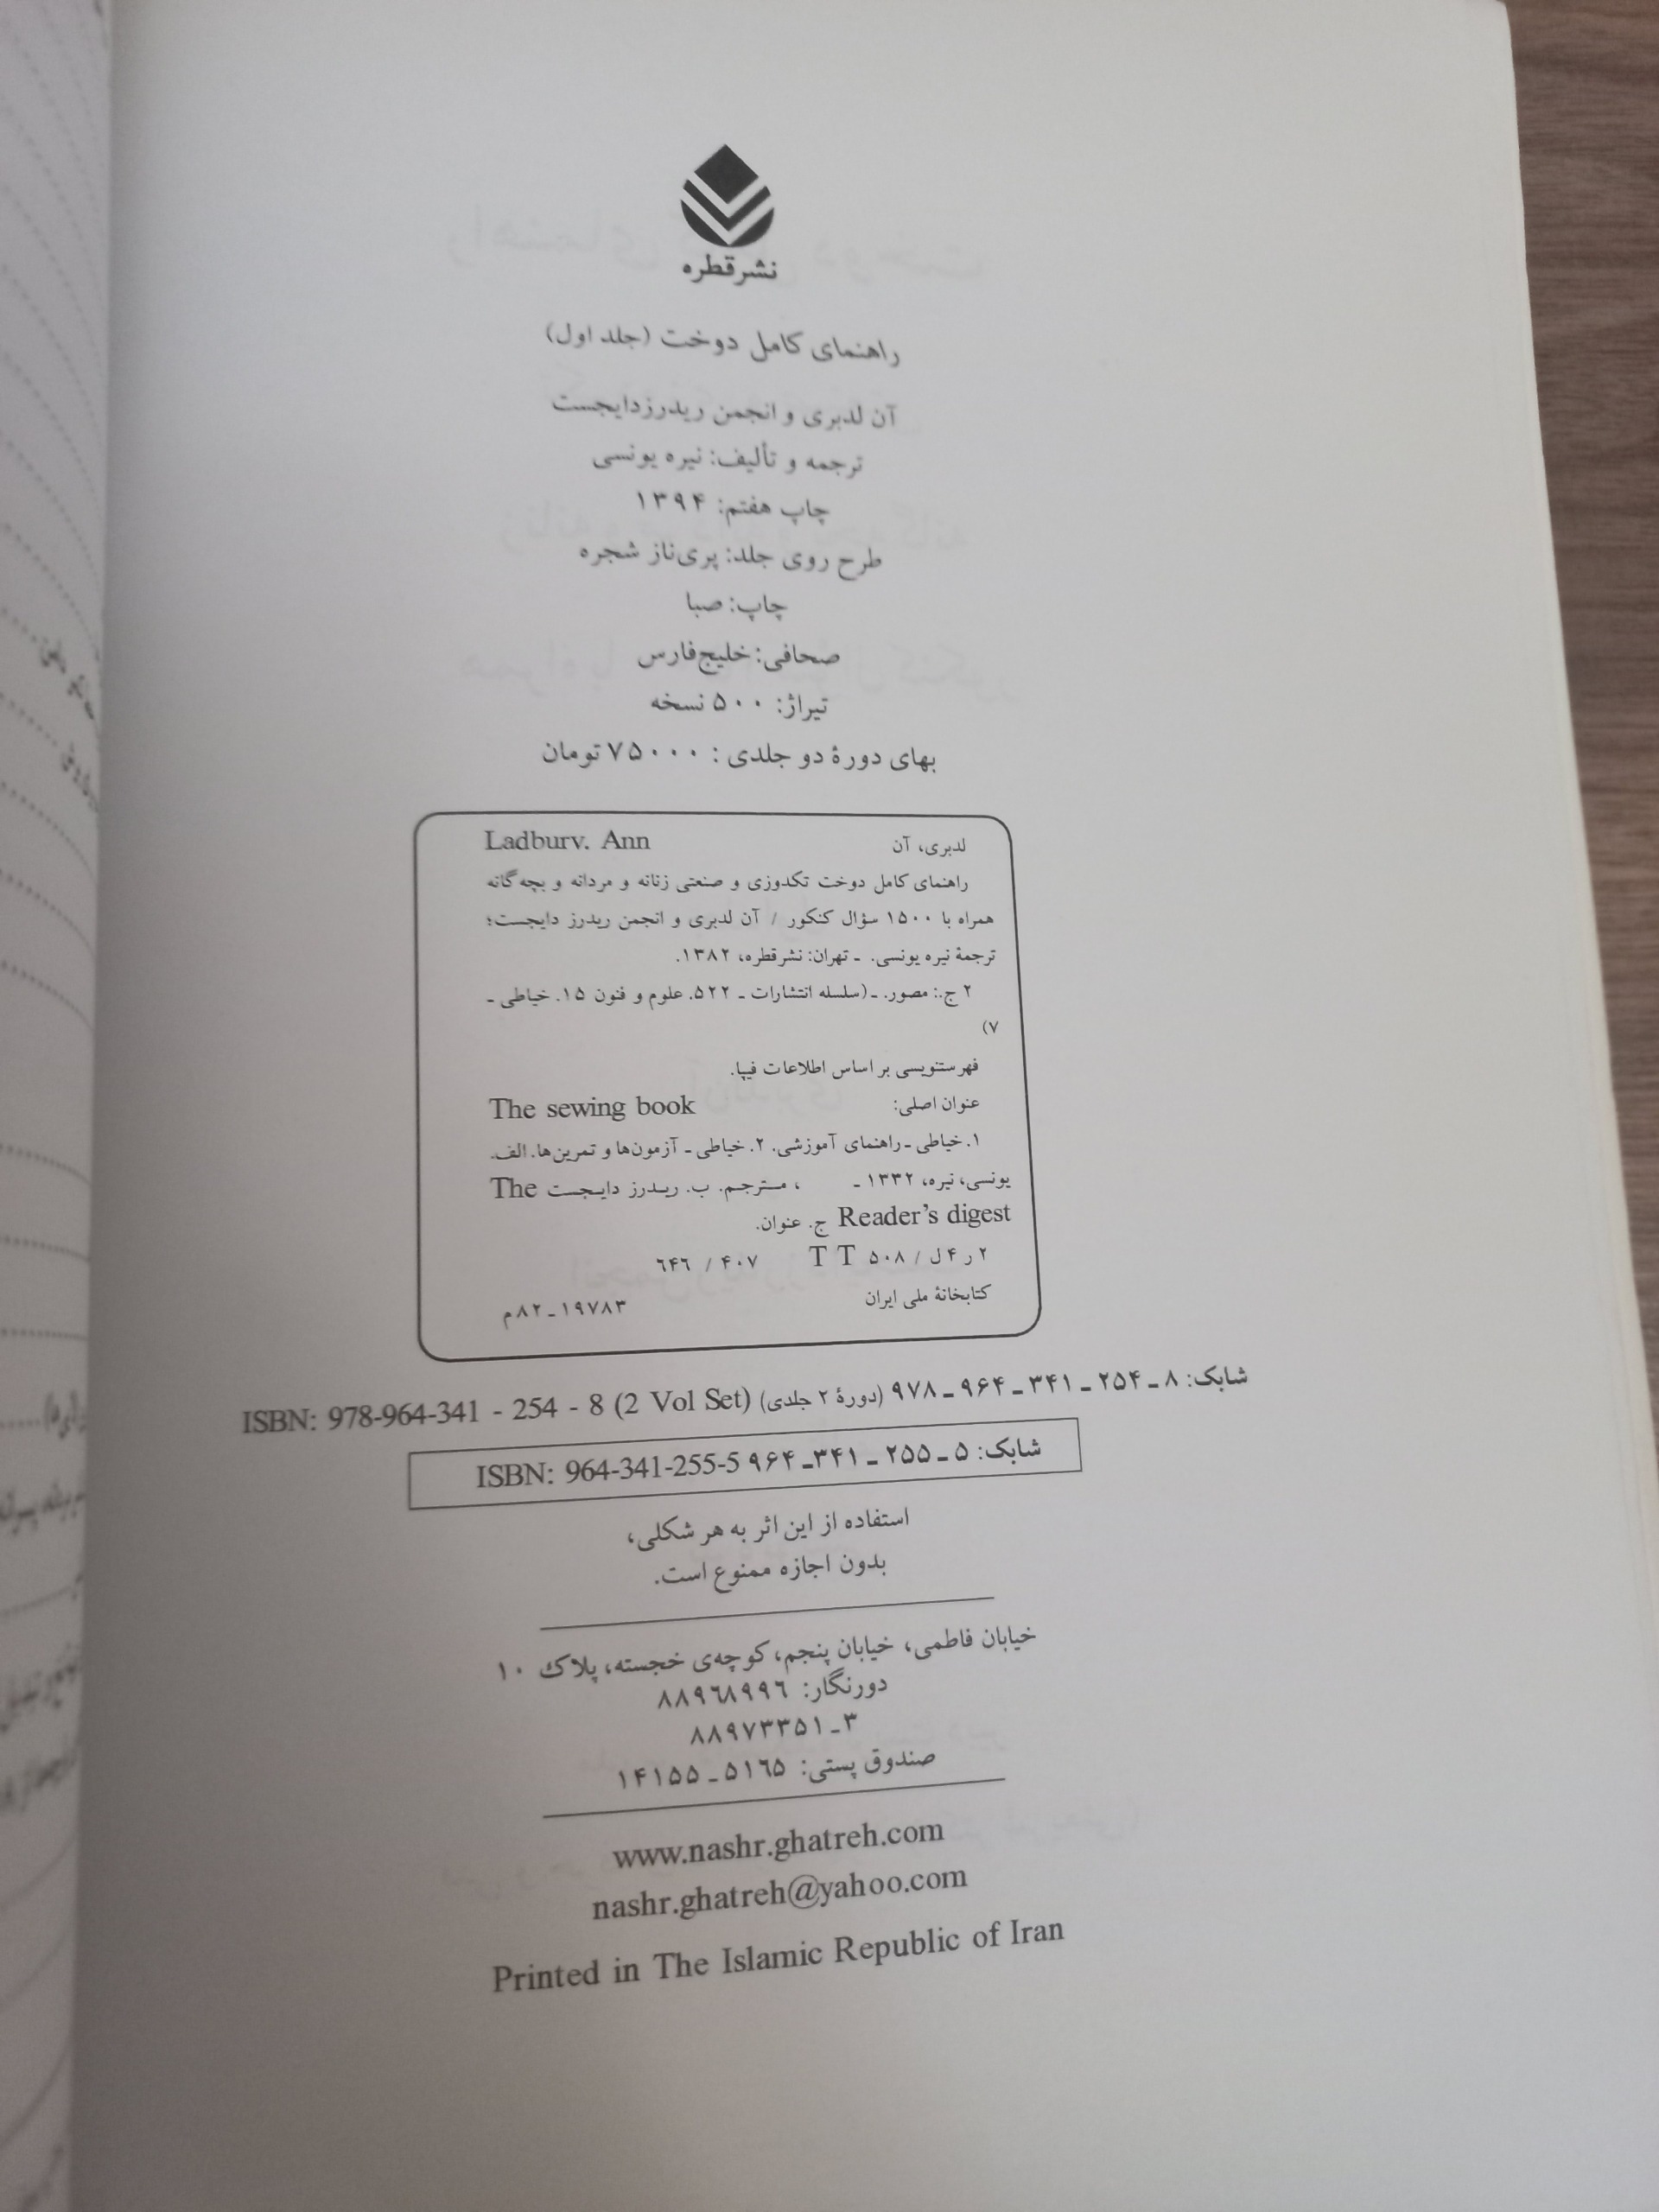 نشر قطره
راهنمای کامل دوخت (جلد اول)
آن لدبری و انجمن ریدرزدایجست
ترجمه و تألیف: نیره یونسی
چاپ هفتم: ۱۳۹۴
طرح روی جلد: پری‌ناز شجره
چاپ: صبا
صحافی: خلیج‌فارس
تیراژ: ۵۰۰ نسخه
بهای دورهٔ دو جلدی : ۷۵۰۰۰ تومان
لدبری، آن Ladbury. Ann
راهنمای کامل دوخت تکدوزی و صنعتی زنانه و مردانه و بچه‌گانه
همراه با ۱۵۰۰ سؤال کنکور / آن لدبری و انجمن ریدرز دایجست؛
ترجمهٔ نیره یونسی. ـ تهران: نشرقطره، ۱۳۸۲.
۲ ج.: مصور. ـ (سلسله انتشارات ـ ۵۲۲. علوم و فنون ۱۵. خیاطی ـ
۷)
فهرستنویسی بر اساس اطلاعات فیپا.
عنوان اصلی: The sewing book
۱. خیاطی ـ راهنمای آموزشی. ۲. خیاطی ـ آزمون‌ها و تمرین‌ها. الف.
یونسی، نیره، ۱۳۳۲ ـ ، مترجم. ب. ریدرز دایجست The
Reader’s digest ج. عنوان.
۲ ر ۴ ل / ۵۰۸ T T ۴۰۷ / ۶۴۶
کتابخانهٔ ملی ایران ۱۹۷۸۳ـ۸۲م
شابک: ۸ ـ ۲۵۴ ـ ۳۴۱ ـ ۹۶۴ ـ ۹۷۸ (دورهٔ ۲ جلدی) ISBN: 978-964-341 - 254 - 8 (2 Vol Set)
شابک: ۵ ـ ۲۵۵ ـ ۳۴۱ـ ۹۶۴ ISBN: 964-341-255-5
استفاده از این اثر به هر شکلی،
بدون اجازه ممنوع است.
خیابان فاطمی، خیابان پنجم، کوچه‌ی خجسته، پلاک ۱۰
دورنگار: ۸۸۹۶۸۹۹۶
۳ـ۸۸۹۷۳۳۵۱
صندوق پستی: ۵۱۶۵ـ۱۴۱۵۵
www.nashr.ghatreh.com
nashr.ghatreh@yahoo.com
Printed in The Islamic Republic of Iran